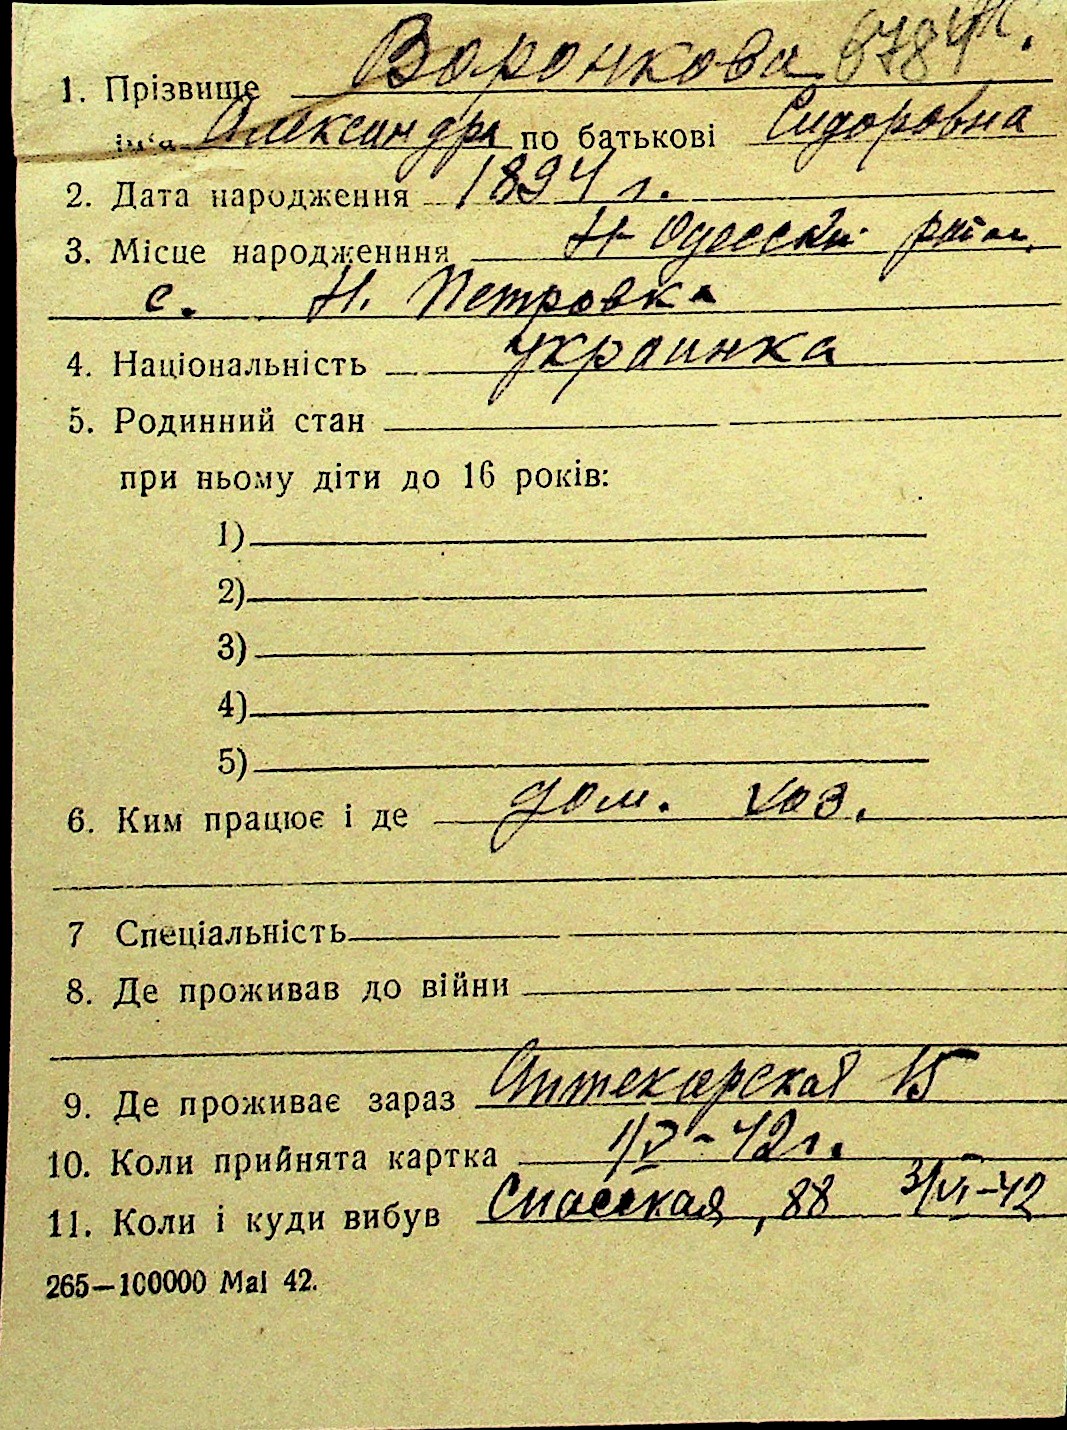 Воронкова 6784
1. Прізвище
ім'я Александра по батькові Сидоровна
2. Дата народження 1894 г.
3. Місце народженння Н-Одесский район,
с. Н. Петровка
4. Національність украинка
5. Родинний стан
при ньому діти до 16 років:
1)
2)
3)
4)
5)
6. Ким працює і де дом. хоз.
7 Спеціальність
8. Де проживав до війни
9. Де проживає зараз Аптекарская 15
10. Коли прийнята картка 1/V-42 г.
11. Коли і куди вибув Спасская, 88 3/VI-42
265—100000 Mai 42.